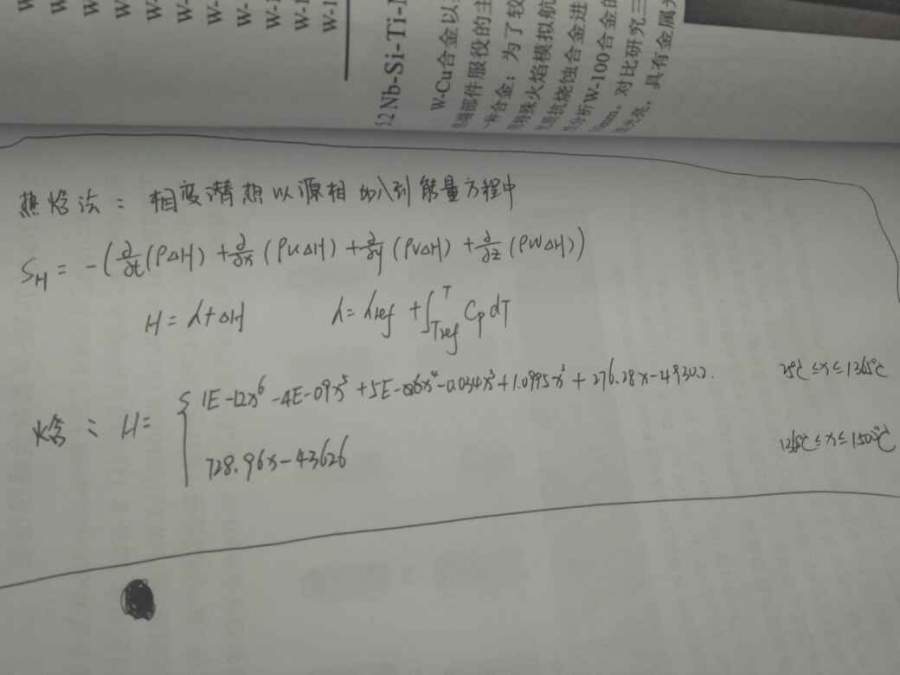 W-1
W-1
W-1
52 Nb-Si-Ti-
W-Cu合金以
端部件服役的主
合金；为了较
特殊火焰模拟航
抗烧蚀合金进
分析W-100合金的
mm，对比研究三
光亮，具有金属光
热焓法：相变潜热以源相加入到能量方程中
S_H = -(∂/∂t(ρΔH) + ∂/∂x(ρuΔH) + ∂/∂y(ρvΔH) + ∂/∂z(ρwΔH))
H = h+ΔH h = h_ref + ∫_Tref^T Cp dT
焓： H = { 1E-12x⁶ -4E-09x⁵ +5E-06x⁴ -0.0034x³ +1.0995x² + 276.28x - 25℃ ≤ x ≤ 1365℃
728.96x - 43626 1365℃ ≤ x ≤ 1500℃